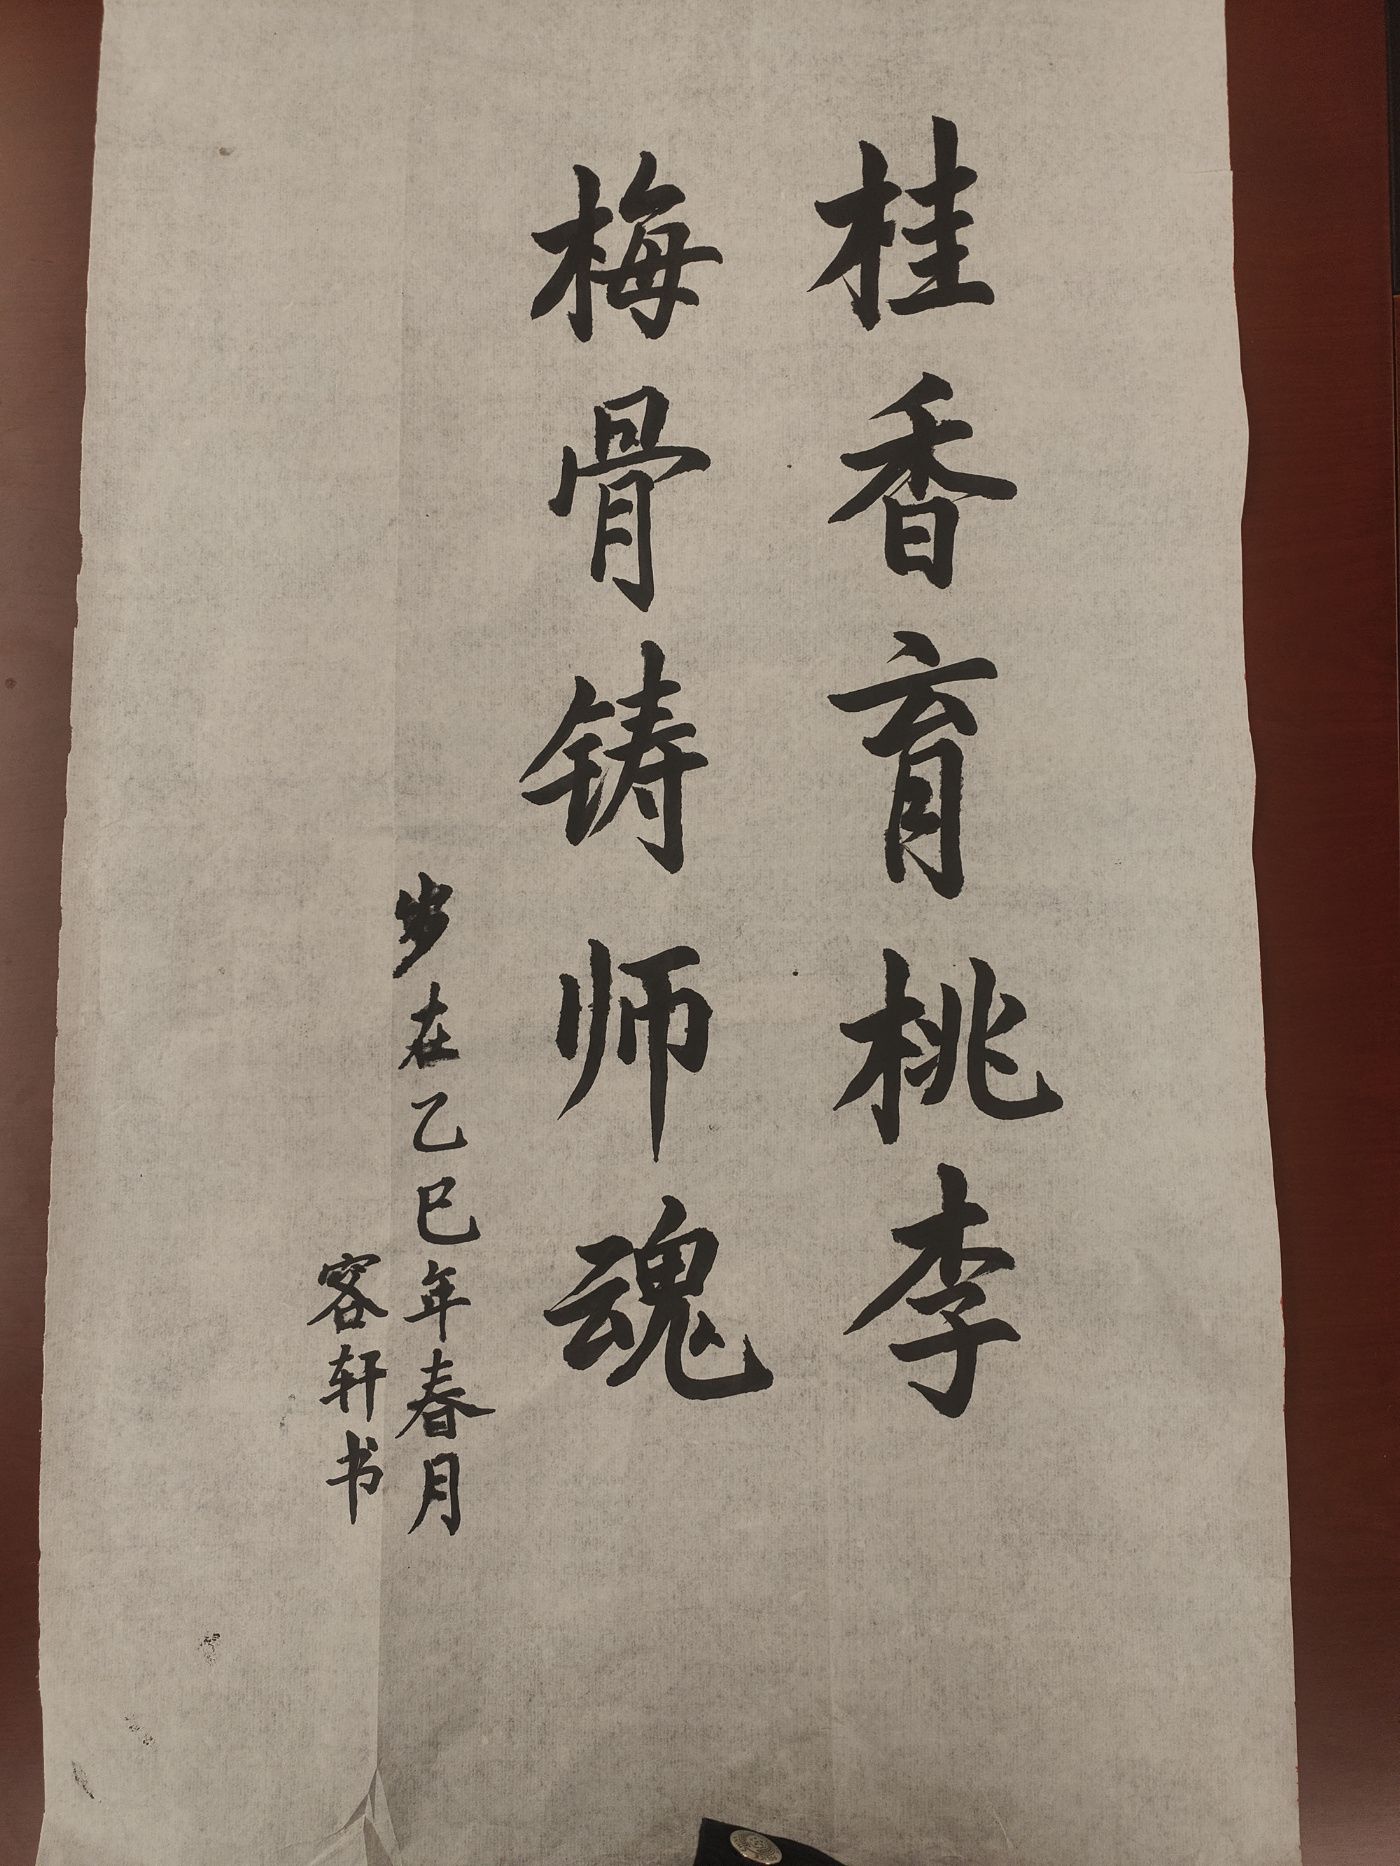 桂香育桃李
梅骨铸师魂
岁在乙巳年春月
容轩书